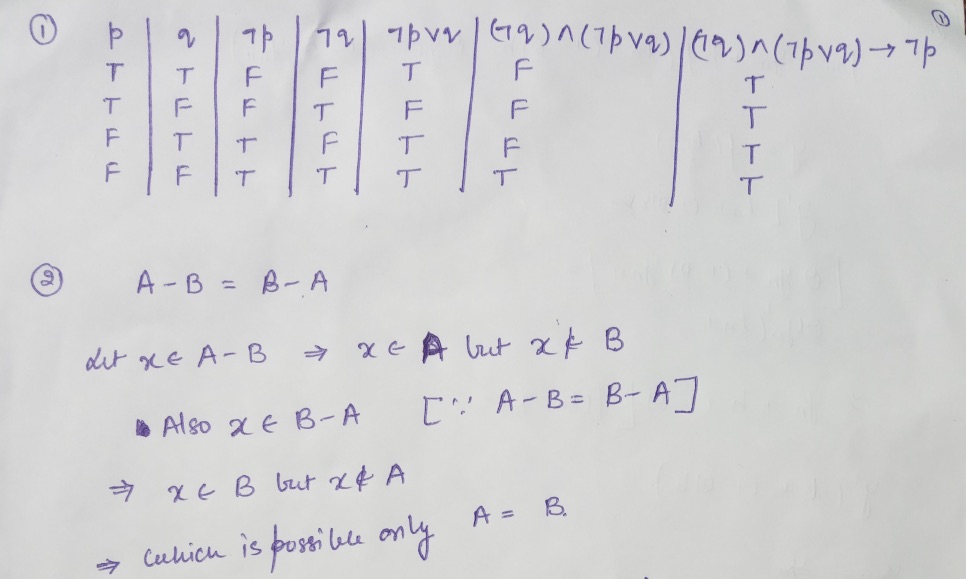 ①
① p | q | ¬p | ¬q | ¬p∨q | (¬q)∧(¬p∨q) | (¬q)∧(¬p∨q)→¬p
T | T | F | F | T | F | T
T | F | F | T | F | F | T
F | T | T | F | T | F | T
F | F | T | T | T | T | T
② A - B = B - A
Let x ∈ A - B ⇒ x ∈ A but x ∉ B
Also x ∈ B - A [∵ A - B = B - A]
⇒ x ∈ B but x ∉ A
⇒ which is possible only A = B.